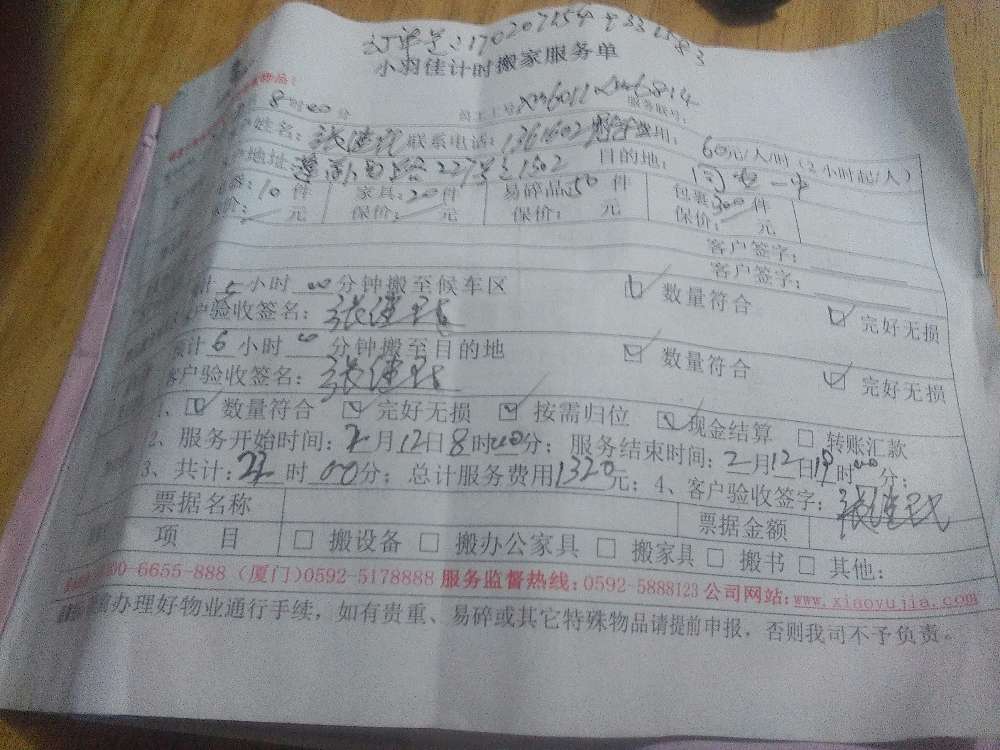 小羽佳计时搬家服务单
8时00分 员工工号 服务账号:
姓名: 联系电话: 费用: 60元/人/时(2小时起/人)
地址: 227号 1502 目的地:
10件 家具:20件 易碎品50件 包裹300件
价: 元 保价: 元 保价: 元 保价: 元
客户签字:
客户签字:
小时00分钟搬至候车区 ☑ 数量符合 ☑ 完好无损
户验收签名:
计6小时00分钟搬至目的地 ☑ 数量符合 ☑ 完好无损
客户验收签名:
1、☑ 数量符合 ☑ 完好无损 ☑ 按需归位 ☑ 现金结算 ☐ 转账汇款
2、服务开始时间:2月12日8时00分; 服务结束时间:2月12日19时00分;
3、共计:22时00分; 总计服务费用1320元; 4、客户验收签字:
票据名称 票据金额
项 目 ☐ 搬设备 ☐ 搬办公家具 ☐ 搬家具 ☐ 搬书 ☐ 其他:
00-6655-888 (厦门)0592-5178888 服务监督热线:0592-5888123 公司网站:www.xiaoyujia.com
办理好物业通行手续, 如有贵重、易碎或其它特殊物品请提前申报, 否则我司不予负责。